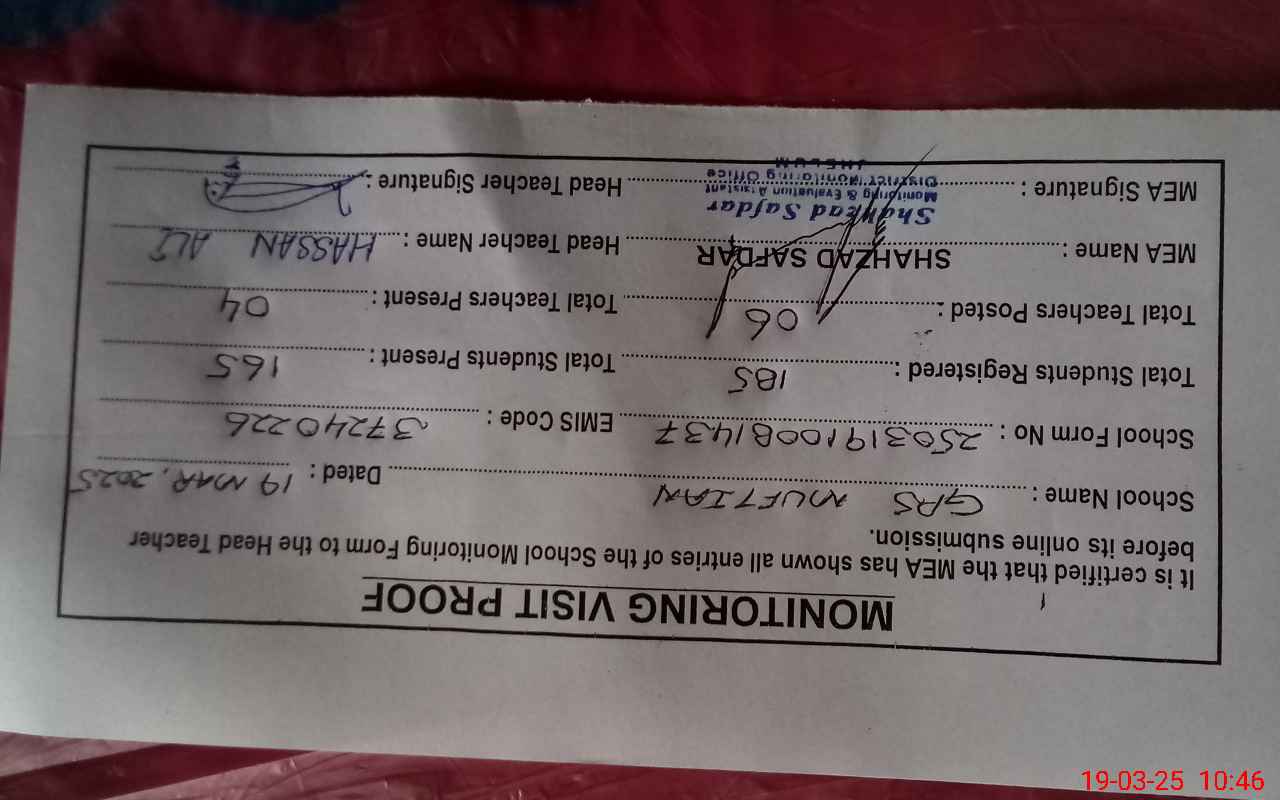 MONITORING VISIT PROOF
It is certified that the MEA has shown all entries of the School Monitoring Form to the Head Teacher
before its online submission.
School Name : GPS MUFTIAN Dated : 19 MAR, 2025
School Form No : 250319100B1437 EMIS Code : 37240226
Total Students Registered : 185 Total Students Present : 165
Total Teachers Posted : 06 Total Teachers Present : 04
MEA Name : SHAHZAD SAFDAR Head Teacher Name : HASSAN ALI
MEA Signature : Head Teacher Signature :
Shahzad Safdar
Monitoring & Evaluation Assistant
District Monitoring Office
JHELUM
19-03-25 10:46